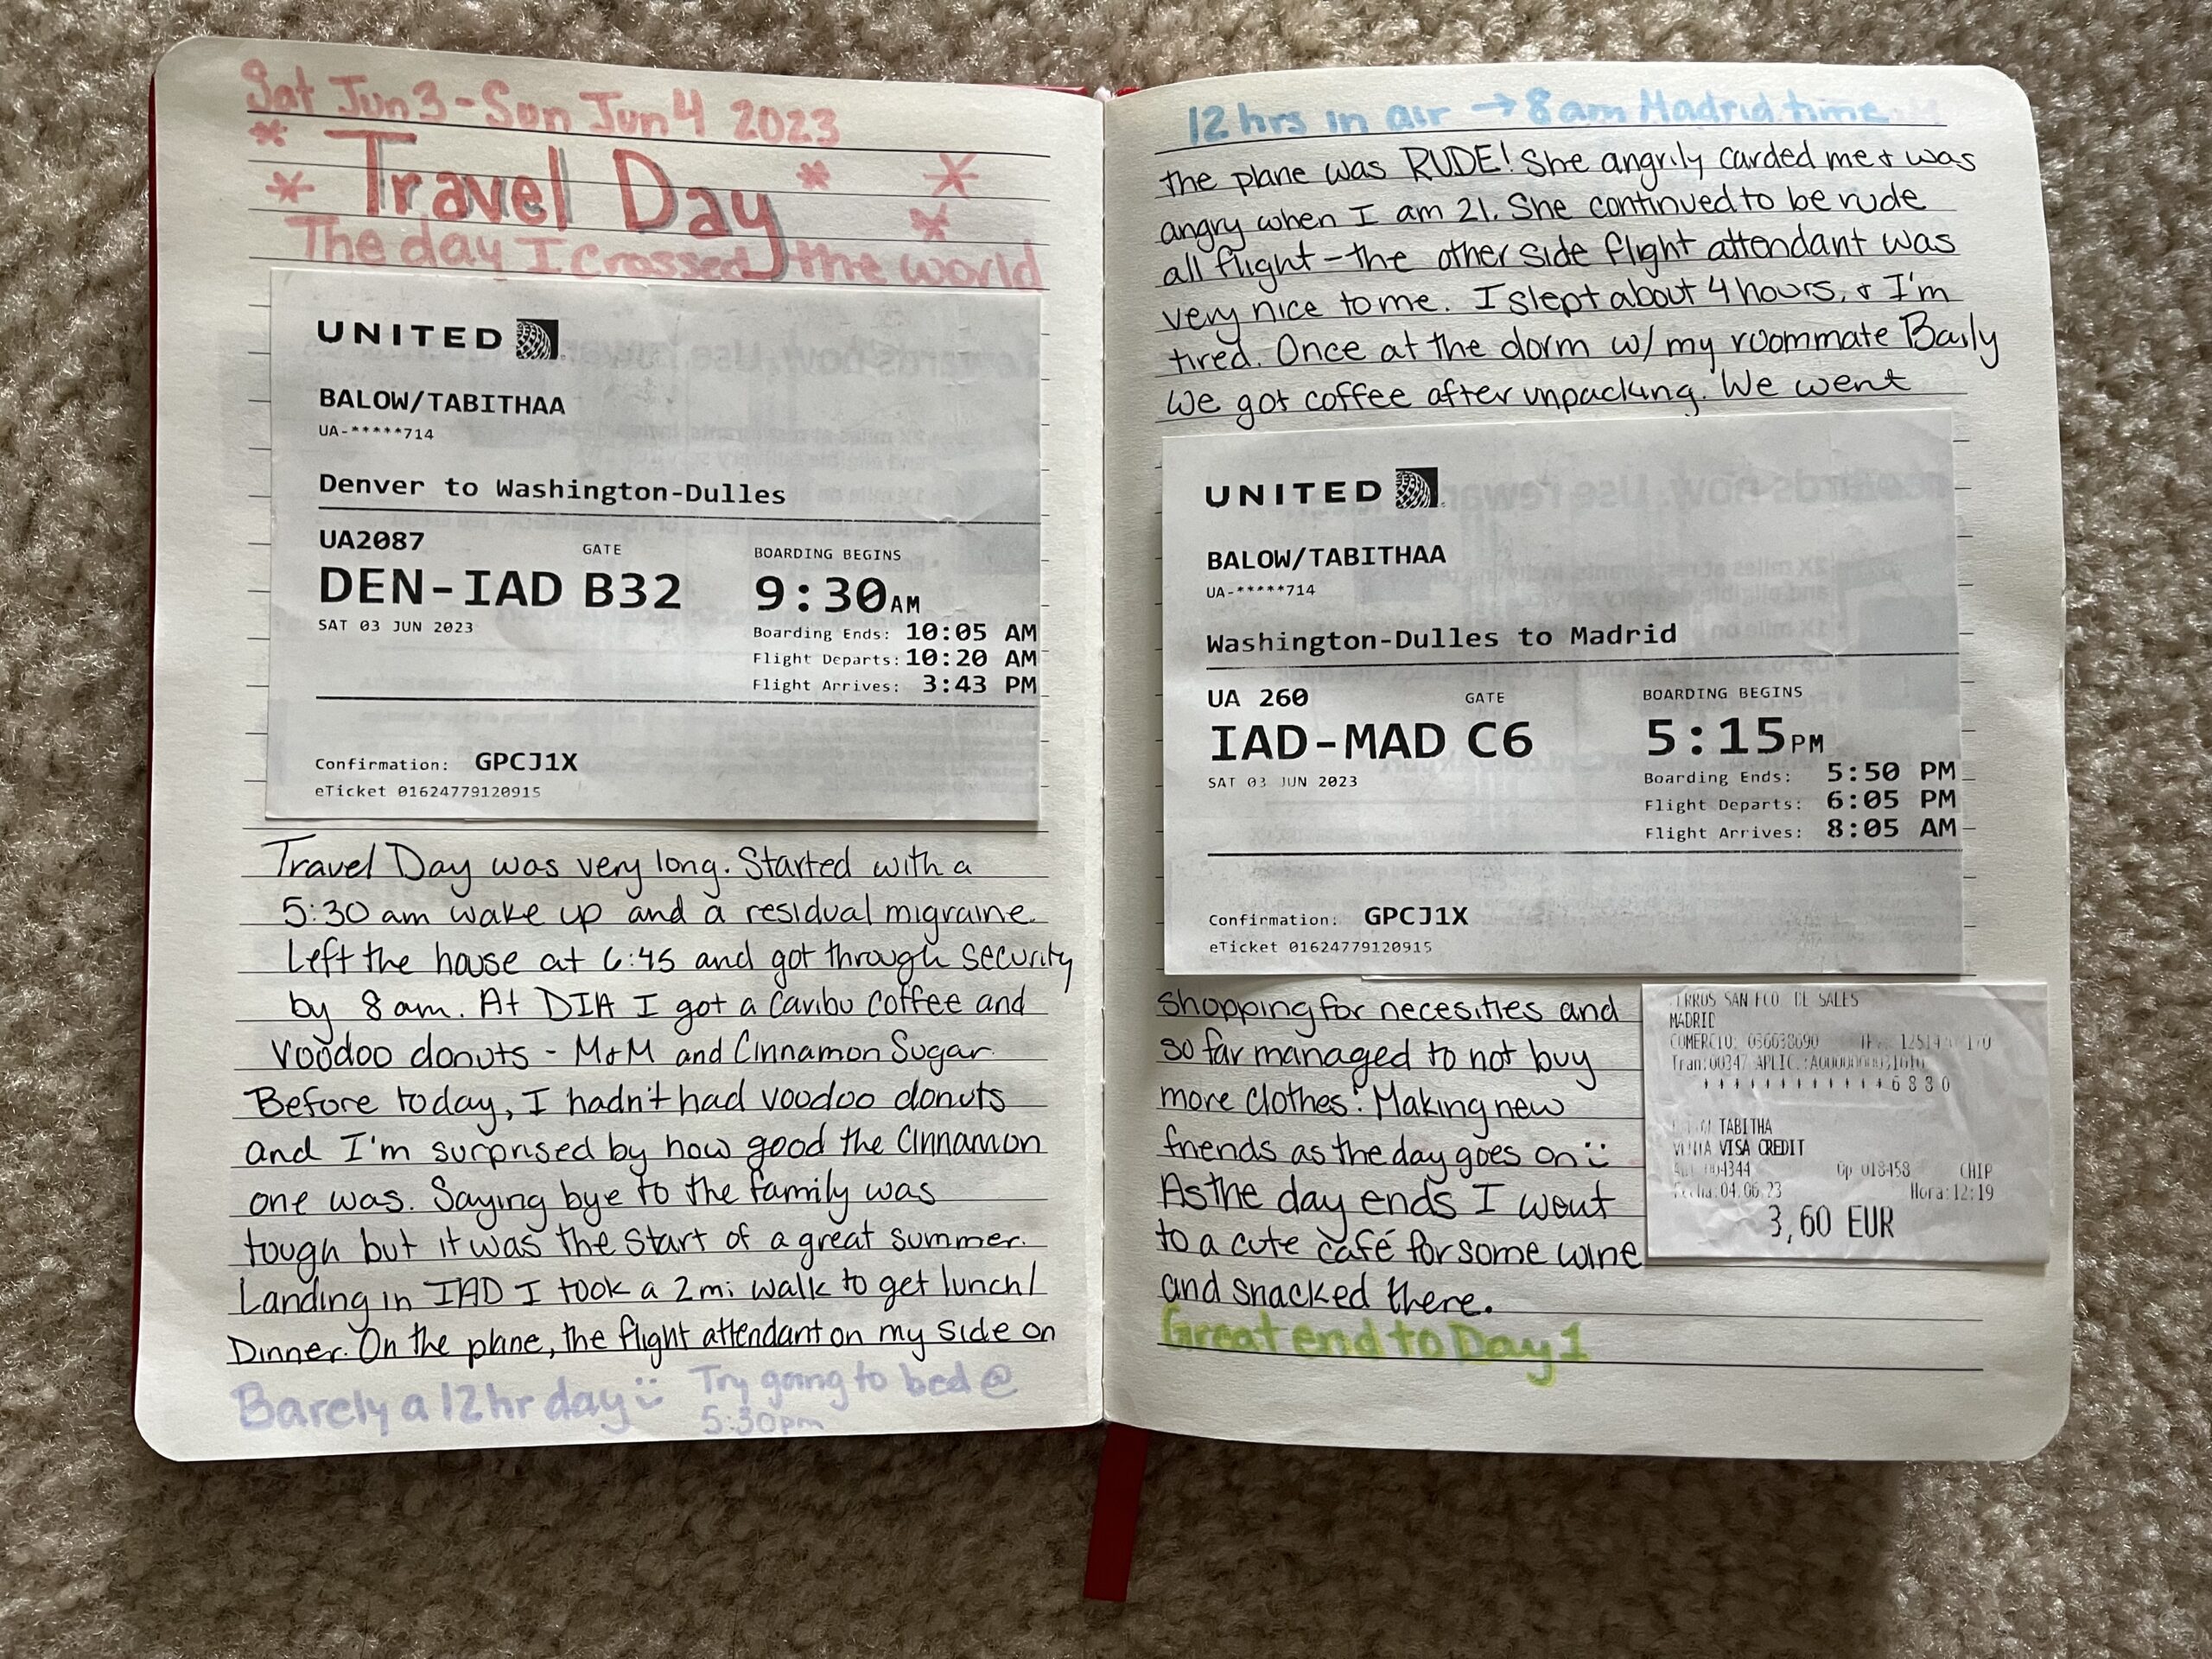 Sat Jun 3 - Sun Jun 4 2023
Travel Day
The day I crossed the world
UNITED
BALOW/TABITHAA
UA-*****714
Denver to Washington-Dulles
UA2087
GATE
BOARDING BEGINS
DEN-IAD B32
9:30AM
SAT 03 JUN 2023
Boarding Ends: 10:05 AM
Flight Departs: 10:20 AM
Flight Arrives: 3:43 PM
Confirmation: GPCJ1X
eTicket 01624779120915
Travel Day was very long. Started with a
5:30 am wake up and a residual migraine.
Left the house at 6:45 and got through security
by 8am. At DIA I got a Caribu coffee and
Voodoo donuts - M&M and Cinnamon Sugar.
Before today, I hadn't had voodoo donuts
and I'm surprised by how good the Cinnamon
one was. Saying bye to the family was
tough but it was the start of a great summer.
Landing in IAD I took a 2mi walk to get lunch/
Dinner. On the plane, the flight attendant on my side on
Barely a 12hr day :)
Try going to bed @
5:30pm
12 hrs in air → 8am Madrid time
the plane was RUDE! She angrily carded me & was
angry when I am 21. She continued to be rude
all flight - the other side flight attendant was
very nice to me. I slept about 4 hours, & I'm
tired. Once at the dorm w/ my roommate Baily
we got coffee after unpacking. We went
UNITED
BALOW/TABITHAA
UA-*****714
Washington-Dulles to Madrid
UA 260
GATE
BOARDING BEGINS
IAD-MAD C6
5:15PM
SAT 03 JUN 2023
Boarding Ends: 5:50 PM
Flight Departs: 6:05 PM
Flight Arrives: 8:05 AM
Confirmation: GPCJ1X
eTicket 01624779120915
shopping for necesities and
so far managed to not buy
more clothes. Making new
friends as the day goes on :)
As the day ends I went
to a cute café for some wine
and snacked there.
Great end to Day 1
SAN FCO. DE SALES
MADRID
COMERCIO: 036638690
Tran:00347 APLIC.:
************6830
TABITHA
VISA CREDIT
Op 018458 CHIP
04.06.23 Hora:12:19
3,60 EUR